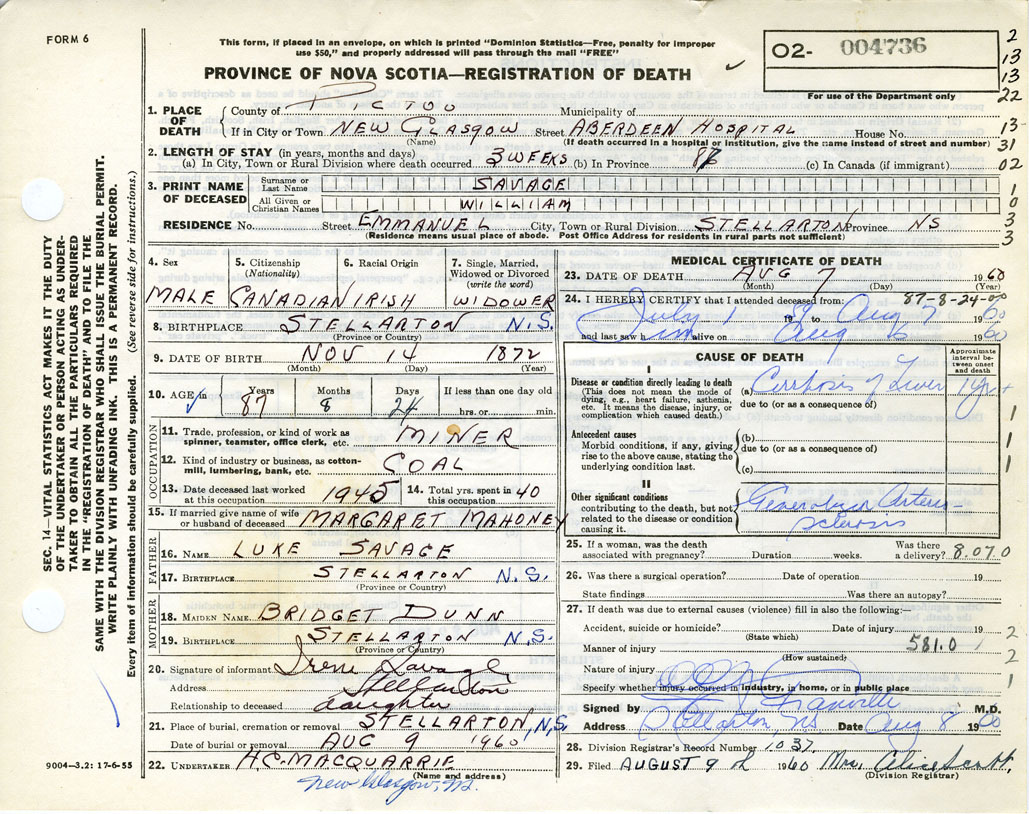 FORM 6
This form, if placed in an envelope, on which is printed "Dominion Statistics—Free, penalty for improper
use $50," and properly addressed will pass through the mail "FREE"
PROVINCE OF NOVA SCOTIA—REGISTRATION OF DEATH
02- 004736
For use of the Department only
2
13
13
22
13-
31
02
1
0
3
3
1. PLACE OF DEATH
County of PICTOU Municipality of
If in City or Town NEW GLASGOW Street ABERDEEN HOSPITAL House No.
(Name) (If death occurred in a hospital or institution, give the name instead of street and number)
2. LENGTH OF STAY (in years, months and days)
(a) In City, Town or Rural Division where death occurred 3 WEEKS (b) In Province 87 (c) In Canada (if immigrant)
3. PRINT NAME OF DECEASED
Surname or Last Name SAVAGE
All Given or Christian Names WILLIAM
RESIDENCE No. Street EMMANUEL City, Town or Rural Division STELLARTON Province NS
(Residence means usual place of abode. Post Office Address for residents in rural parts not sufficient)
4. Sex 5. Citizenship (Nationality) 6. Racial Origin 7. Single, Married, Widowed or Divorced (write the word)
MALE CANADIAN IRISH WIDOWER
8. BIRTHPLACE STELLARTON N.S.
(Province or Country)
9. DATE OF BIRTH NOV 14 1872
(Month) (Day) (Year)
10. AGE Years 87 Months 8 Days 24 If less than one day old
hrs. or min.
OCCUPATION
11. Trade, profession, or kind of work as spinner, teamster, office clerk, etc. MINER
12. Kind of industry or business, as cotton-mill, lumbering, bank, etc. COAL
13. Date deceased last worked at this occupation 1945 14. Total yrs. spent in this occupation 40
15. If married give name of wife or husband of deceased MARGARET MAHONEY
FATHER
16. NAME LUKE SAVAGE
17. BIRTHPLACE STELLARTON N.S.
(Province or Country)
MOTHER
18. MAIDEN NAME BRIDGET DUNN
19. BIRTHPLACE STELLARTON N.S.
(Province or Country)
20. Signature of informant Irene Savage
Address Stellarton
Relationship to deceased daughter
21. Place of burial, cremation or removal STELLARTON, N.S.
Date of burial or removal AUG 9 1960
22. UNDERTAKER H.C. MACQUARRIE
(Name and address)
New Glasgow, N.S.
9004—3.2: 17-6-55
SEC. 14—VITAL STATISTICS ACT MAKES IT THE DUTY
OF THE UNDERTAKER OR PERSON ACTING AS UNDER-
TAKER TO OBTAIN ALL THE PARTICULARS REQUIRED
IN THE "REGISTRATION OF DEATH" AND TO FILE THE
SAME WITH THE DIVISION REGISTRAR WHO SHALL ISSUE THE BURIAL PERMIT.
WRITE PLAINLY WITH UNFADING INK. THIS IS A PERMANENT RECORD.
Every item of information should be carefully supplied. (See reverse side for instructions.)
MEDICAL CERTIFICATE OF DEATH
23. DATE OF DEATH AUG 7 1960
(Month) (Day) (Year)
24. I HEREBY CERTIFY that I attended deceased from: 87-8-24-00
July 1 19 to Aug 7 1960
and last saw him alive on Aug 6 1960
CAUSE OF DEATH
Approximate interval between onset and death
I
Disease or condition directly leading to death
(This does not mean the mode of dying, e.g., heart failure, asthenia, etc. It means the disease, injury, or complication which caused death.)
(a) Cirrhosis of Liver 1 yr +
due to (or as a consequence of)
Antecedent causes
Morbid conditions, if any, giving rise to the above cause, stating the underlying condition last.
(b)
due to (or as a consequence of)
(c)
1
1
1
II
Other significant conditions
contributing to the death, but not related to the disease or condition causing it.
Generalized Arterio-
sclerosis
25. If a woman, was the death associated with pregnancy? Duration weeks. Was there a delivery? 8.07.0
26. Was there a surgical operation? Date of operation 19
State findings Was there an autopsy?
27. If death was due to external causes (violence) fill in also the following:—
Accident, suicide or homicide? Date of injury 19
(State which)
Manner of injury 581.0
(How sustained)
Nature of injury
Specify whether injury occurred in industry, in home, or in public place
2
2
1
Signed by Granville M.D.
Address Stellarton, NS Date Aug 8 1960
28. Division Registrar's Record Number 1037.
29. Filed AUGUST 9th 1960 Mrs. Alice Scott.
(Division Registrar)